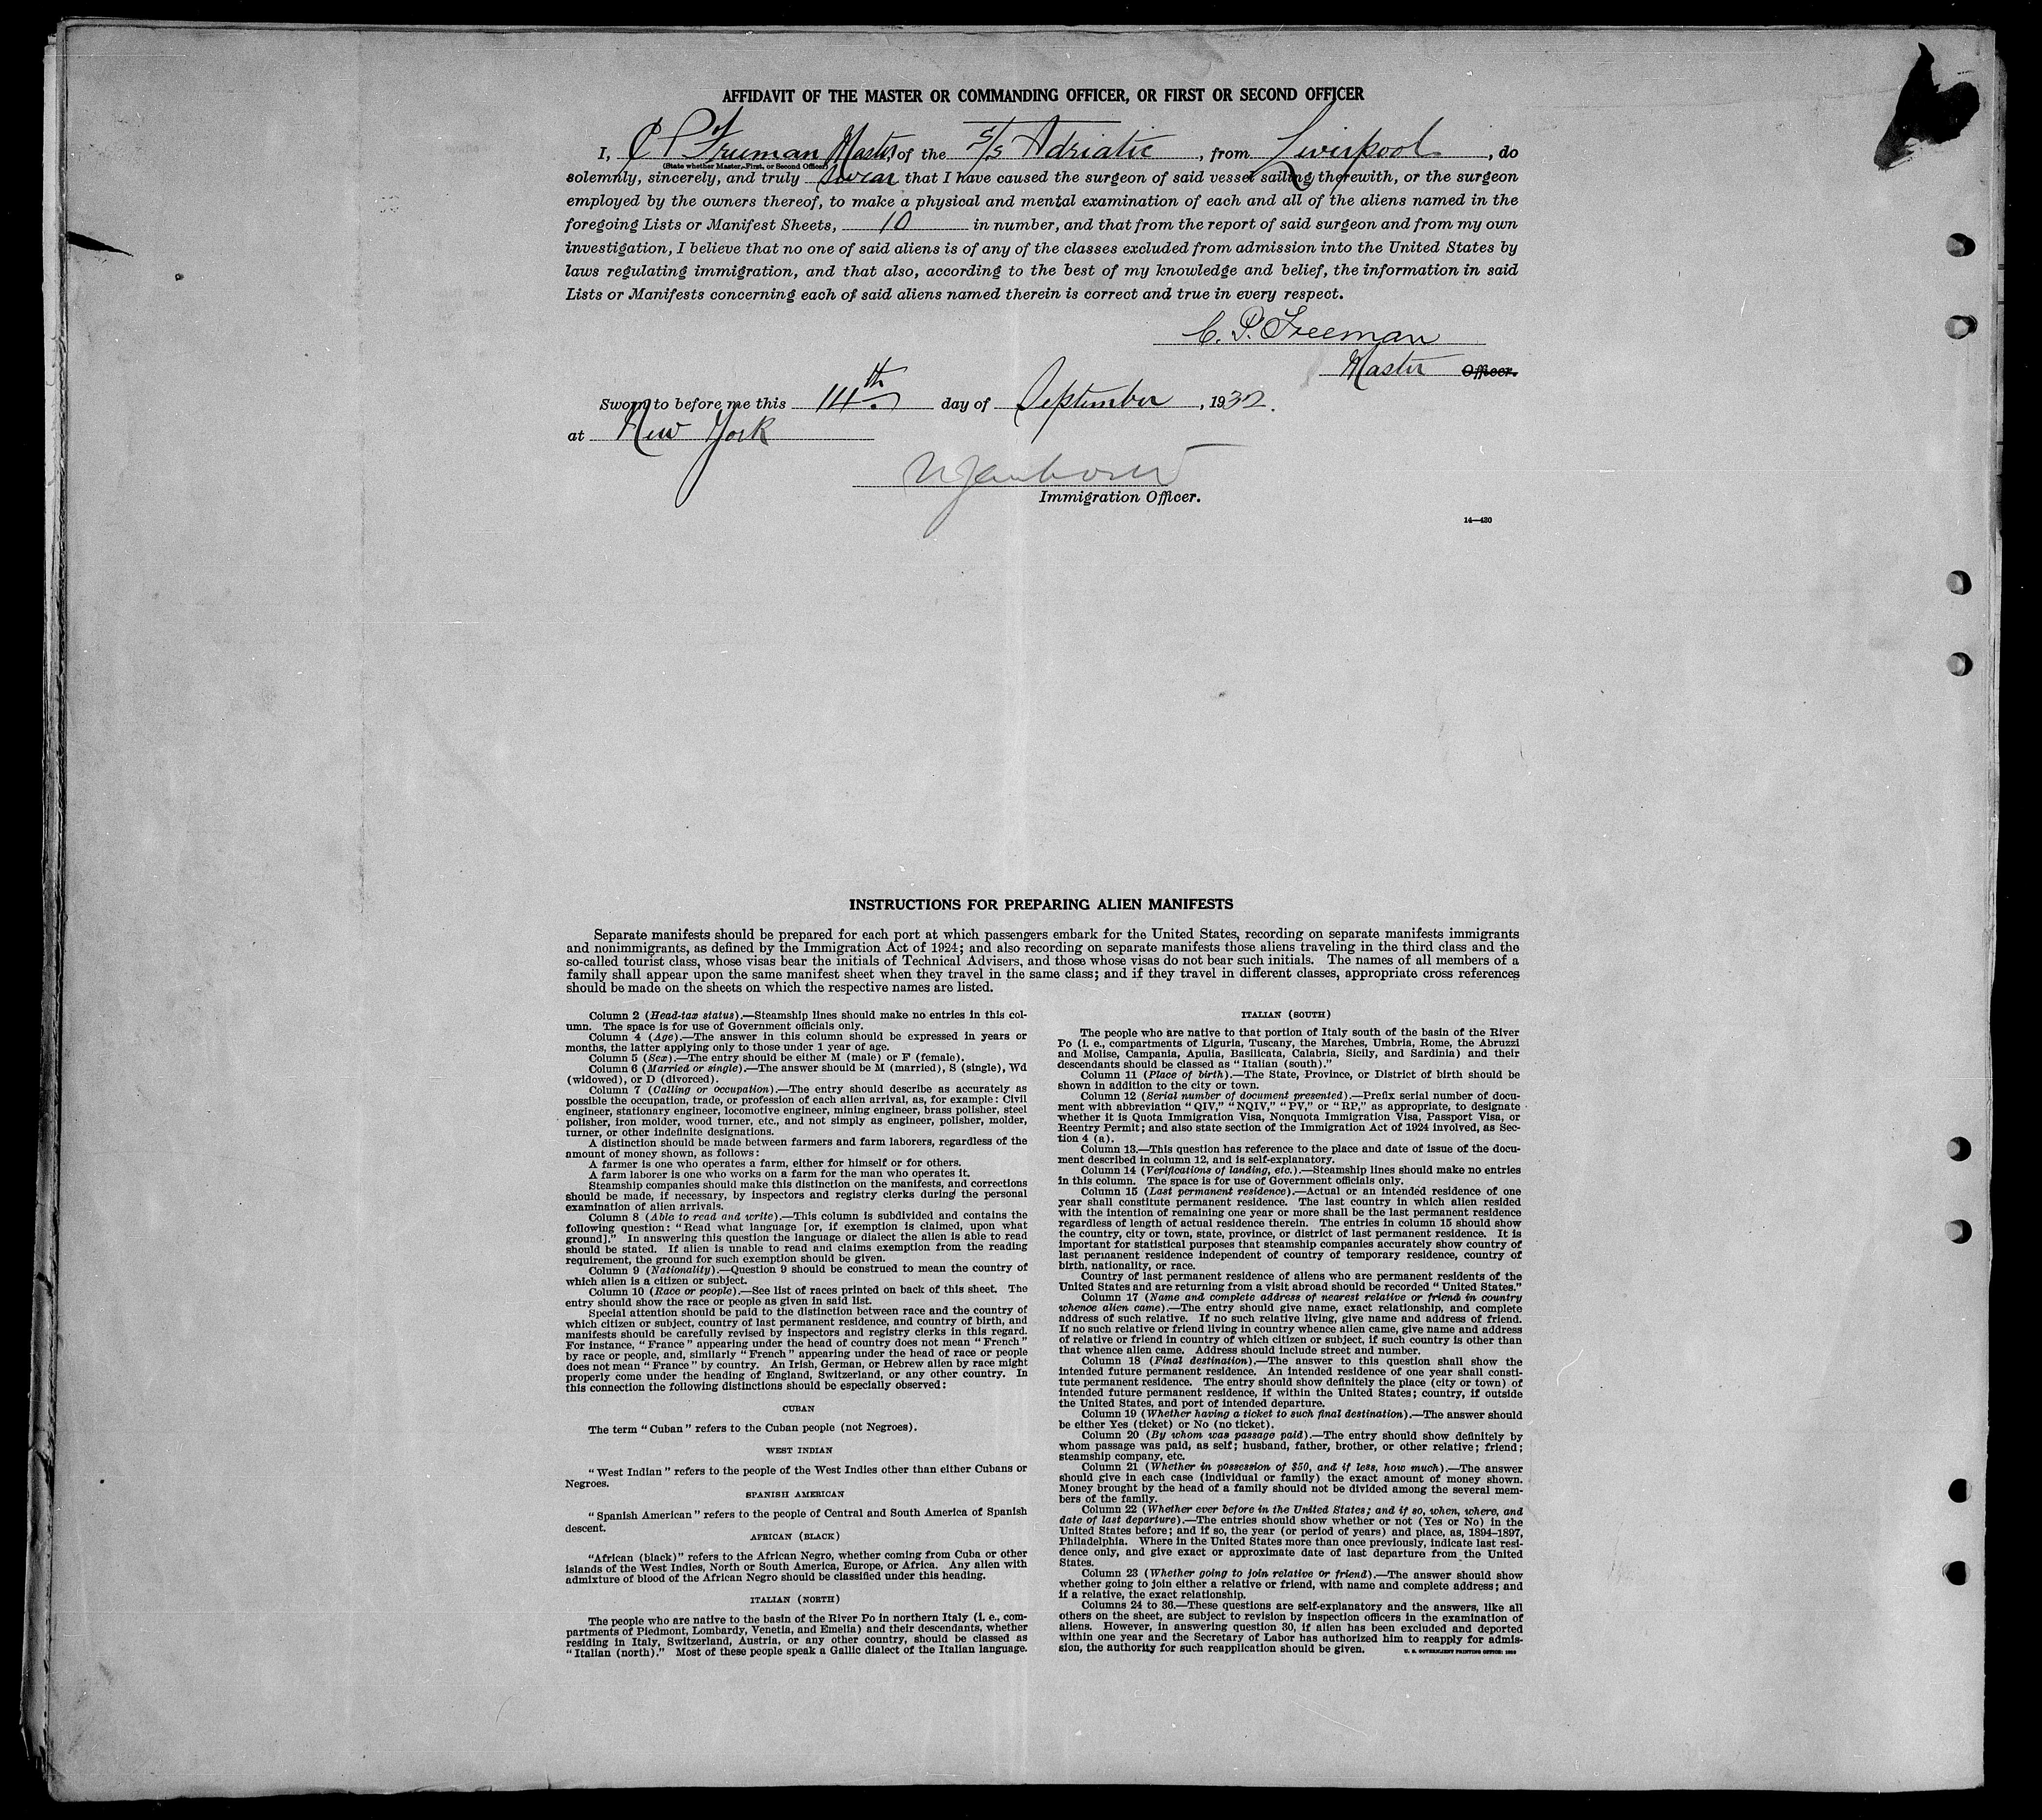 AFFIDAVIT OF THE MASTER OR COMMANDING OFFICER, OR FIRST OR SECOND OFFICER
I, C P Freeman Master, of the S/S Adriatic, from Liverpool, do
(State whether Master, First, or Second Officer)
solemnly, sincerely, and truly swear that I have caused the surgeon of said vessel sailing therewith, or the surgeon
employed by the owners thereof, to make a physical and mental examination of each and all of the aliens named in the
foregoing Lists or Manifest Sheets, 10 in number, and that from the report of said surgeon and from my own
investigation, I believe that no one of said aliens is of any of the classes excluded from admission into the United States by
laws regulating immigration, and that also, according to the best of my knowledge and belief, the information in said
Lists or Manifests concerning each of said aliens named therein is correct and true in every respect.
C. P. Freeman
Master Officer.
Sworn to before me this 14th day of September, 1932.
at New York
Immigration Officer.
14—420
INSTRUCTIONS FOR PREPARING ALIEN MANIFESTS
Separate manifests should be prepared for each port at which passengers embark for the United States, recording on separate manifests immigrants
and nonimmigrants, as defined by the Immigration Act of 1924; and also recording on separate manifests those aliens traveling in the third class and the
so-called tourist class, whose visas bear the initials of Technical Advisers, and those whose visas do not bear such initials. The names of all members of a
family shall appear upon the same manifest sheet when they travel in the same class; and if they travel in different classes, appropriate cross references
should be made on the sheets on which the respective names are listed.
Column 2 (Head-tax status).—Steamship lines should make no entries in this col-
umn. The space is for use of Government officials only.
Column 4 (Age).—The answer in this column should be expressed in years or
months, the latter applying only to those under 1 year of age.
Column 5 (Sex).—The entry should be either M (male) or F (female).
Column 6 (Married or single).—The answer should be M (married), S (single), Wd
(widowed), or D (divorced).
Column 7 (Calling or occupation).—The entry should describe as accurately as
possible the occupation, trade, or profession of each alien arrival, as, for example: Civil
engineer, stationary engineer, locomotive engineer, mining engineer, brass polisher, steel
polisher, iron molder, wood turner, etc., and not simply as engineer, polisher, molder,
turner, or other indefinite designations.
A distinction should be made between farmers and farm laborers, regardless of the
amount of money shown, as follows:
A farmer is one who operates a farm, either for himself or for others.
A farm laborer is one who works on a farm for the man who operates it.
Steamship companies should make this distinction on the manifests, and corrections
should be made, if necessary, by inspectors and registry clerks during the personal
examination of alien arrivals.
Column 8 (Able to read and write).—This column is subdivided and contains the
following question: "Read what language [or, if exemption is claimed, upon what
ground]." In answering this question the language or dialect the alien is able to read
should be stated. If alien is unable to read and claims exemption from the reading
requirement, the ground for such exemption should be given.
Column 9 (Nationality).—Question 9 should be construed to mean the country of
which alien is a citizen or subject.
Column 10 (Race or people).—See list of races printed on back of this sheet. The
entry should show the race or people as given in said list.
Special attention should be paid to the distinction between race and the country of
which citizen or subject, country of last permanent residence, and country of birth, and
manifests should be carefully revised by inspectors and registry clerks in this regard.
For instance, "France" appearing under the head of country does not mean "French"
by race or people, and, similarly "French" appearing under the head of race or people
does not mean "France" by country. An Irish, German, or Hebrew alien by race might
properly come under the heading of England, Switzerland, or any other country. In
this connection the following distinctions should be especially observed:
CUBAN
The term "Cuban" refers to the Cuban people (not Negroes).
WEST INDIAN
"West Indian" refers to the people of the West Indies other than either Cubans or
Negroes.
SPANISH AMERICAN
"Spanish American" refers to the people of Central and South America of Spanish
descent.
AFRICAN (BLACK)
"African (black)" refers to the African Negro, whether coming from Cuba or other
islands of the West Indies, North or South America, Europe, or Africa. Any alien with
admixture of blood of the African Negro should be classified under this heading.
ITALIAN (NORTH)
The people who are native to the basin of the River Po in northern Italy (i. e., com-
partments of Piedmont, Lombardy, Venetia, and Emelia) and their descendants, whether
residing in Italy, Switzerland, Austria, or any other country, should be classed as
"Italian (north)." Most of these people speak a Gallic dialect of the Italian language.
ITALIAN (SOUTH)
The people who are native to that portion of Italy south of the basin of the River
Po (i. e., compartments of Liguria, Tuscany, the Marches, Umbria, Rome, the Abruzzi
and Molise, Campania, Apulia, Basilicata, Calabria, Sicily, and Sardinia) and their
descendants should be classed as "Italian (south)."
Column 11 (Place of birth).—The State, Province, or District of birth should be
shown in addition to the city or town.
Column 12 (Serial number of document presented).—Prefix serial number of docu-
ment with abbreviation "QIV," "NQIV," "PV," or "RP," as appropriate, to designate
whether it is Quota Immigration Visa, Nonquota Immigration Visa, Passport Visa, or
Reentry Permit; and also state section of the Immigration Act of 1924 involved, as Sec-
tion 4 (a).
Column 13.—This question has reference to the place and date of issue of the docu-
ment described in column 12, and is self-explanatory.
Column 14 (Verifications of landing, etc.).—Steamship lines should make no entries
in this column. The space is for use of Government officials only.
Column 15 (Last permanent residence).—Actual or an intended residence of one
year shall constitute permanent residence. The last country in which alien resided
with the intention of remaining one year or more shall be the last permanent residence
regardless of length of actual residence therein. The entries in column 15 should show
the country, city or town, state, province, or district of last permanent residence. It is
important for statistical purposes that steamship companies accurately show country of
last permanent residence independent of country of temporary residence, country of
birth, nationality, or race.
Country of last permanent residence of aliens who are permanent residents of the
United States and are returning from a visit abroad should be recorded "United States."
Column 17 (Name and complete address of nearest relative or friend in country
whence alien came).—The entry should give name, exact relationship, and complete
address of such relative. If no such relative living, give name and address of friend.
If no such relative or friend living in country whence alien came, give name and address
of relative or friend in country of which citizen or subject, if such country is other than
that whence alien came. Address should include street and number.
Column 18 (Final destination).—The answer to this question shall show the
intended future permanent residence. An intended residence of one year shall consti-
tute permanent residence. The entry should show definitely the place (city or town) of
intended future permanent residence, if within the United States; country, if outside
the United States, and port of intended departure.
Column 19 (Whether having a ticket to such final destination).—The answer should
be either Yes (ticket) or No (no ticket).
Column 20 (By whom was passage paid).—The entry should show definitely by
whom passage was paid, as self; husband, father, brother, or other relative; friend;
steamship company, etc.
Column 21 (Whether in possession of $50, and if less, how much).—The answer
should give in each case (individual or family) the exact amount of money shown.
Money brought by the head of a family should not be divided among the several mem-
bers of the family.
Column 22 (Whether ever before in the United States; and if so, when, where, and
date of last departure).—The entries should show whether or not (Yes or No) in the
United States before; and if so, the year (or period of years) and place, as, 1894–1897,
Philadelphia. Where in the United States more than once previously, indicate last resi-
dence only, and give exact or approximate date of last departure from the United
States.
Column 23 (Whether going to join relative or friend).—The answer should show
whether going to join either a relative or friend, with name and complete address; and
if a relative, the exact relationship.
Columns 24 to 36.—These questions are self-explanatory and the answers, like all
others on the sheet, are subject to revision by inspection officers in the examination of
aliens. However, in answering question 30, if alien has been excluded and deported
within one year and the Secretary of Labor has authorized him to reapply for admis-
sion, the authority for such reapplication should be given.
U. S. GOVERNMENT PRINTING OFFICE: